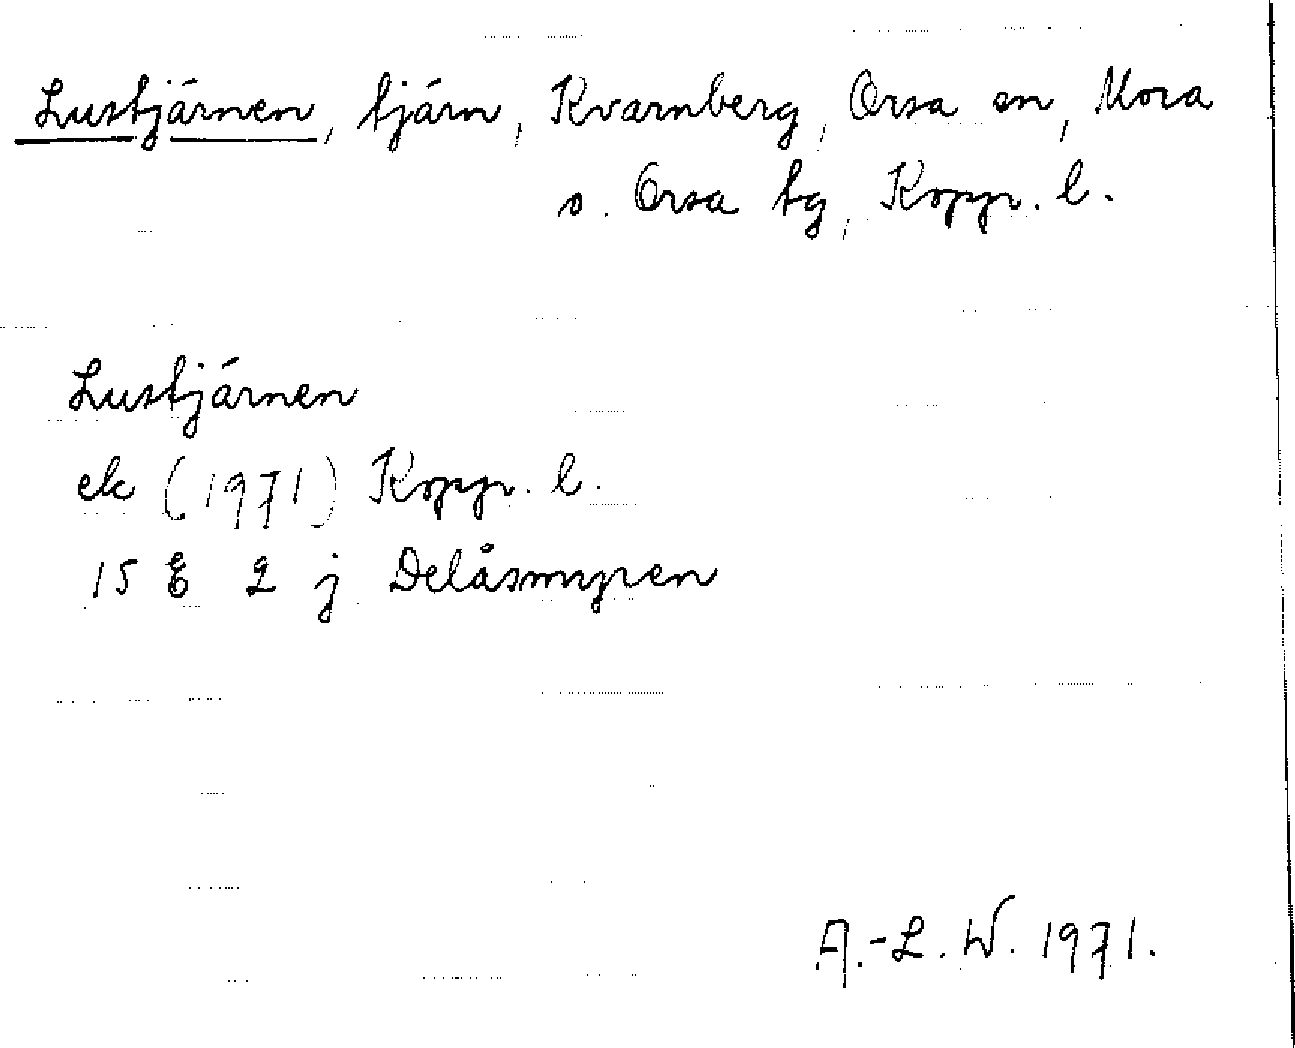 Lustjärnen, tjärn, Kvarnberg, Orsa sn, Mora
o. Orsa tg, Kopp. l.
Lustjärnen
ek (1971) Kopp. l.
15 E 2 j Delåsmyren
A.-L. W. 1971.